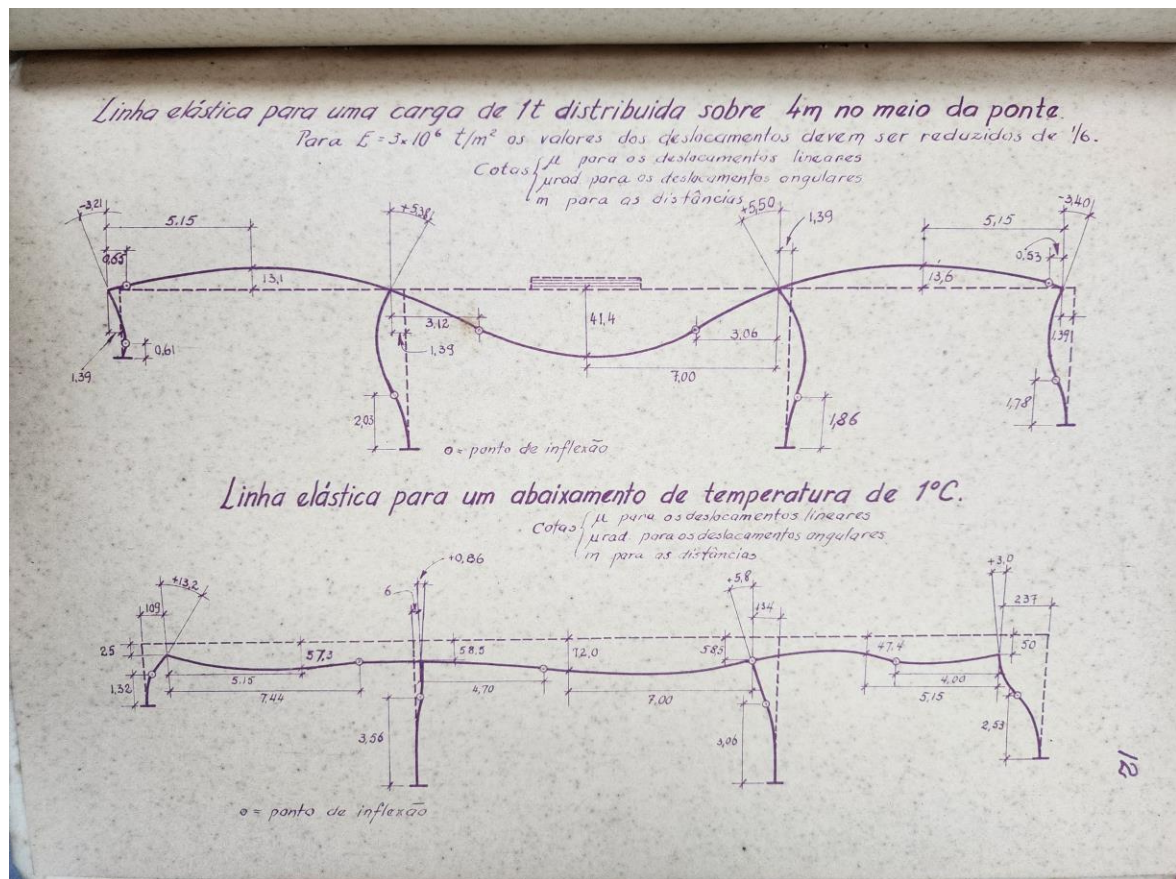 Linha elástica para uma carga de 1t distribuida sobre 4m no meio da ponte.
Para E=3×10⁶ t/m² os valores dos deslocamentos devem ser reduzidos de 1/6.
Cotas { μ para os deslocamentos lineares
μrad para os deslocamentos angulares
m para as distâncias
-3,21
5.15
+5,38
+5,50
1,39
5,15
-3,40
0,65
13,1
0,53
13,6
3,12
41,4
3,06
1,39
7,00
1,39
1,39
0,61
2,03
1,86
1,78
o = ponto de inflexão
Linha elástica para um abaixamento de temperatura de 1°C.
Cotas { μ para os deslocamentos lineares
μrad para os deslocamentos angulares
m para as distâncias
+0,86
+13,2
+5,8
+3,0
109
6
134
237
25
57,3
58.5
72,0
58,5
47,4
50
1,32
5.15
7,44
4,70
7,00
4,00
5,15
3,56
3,06
2,53
12
o = ponto de inflexão